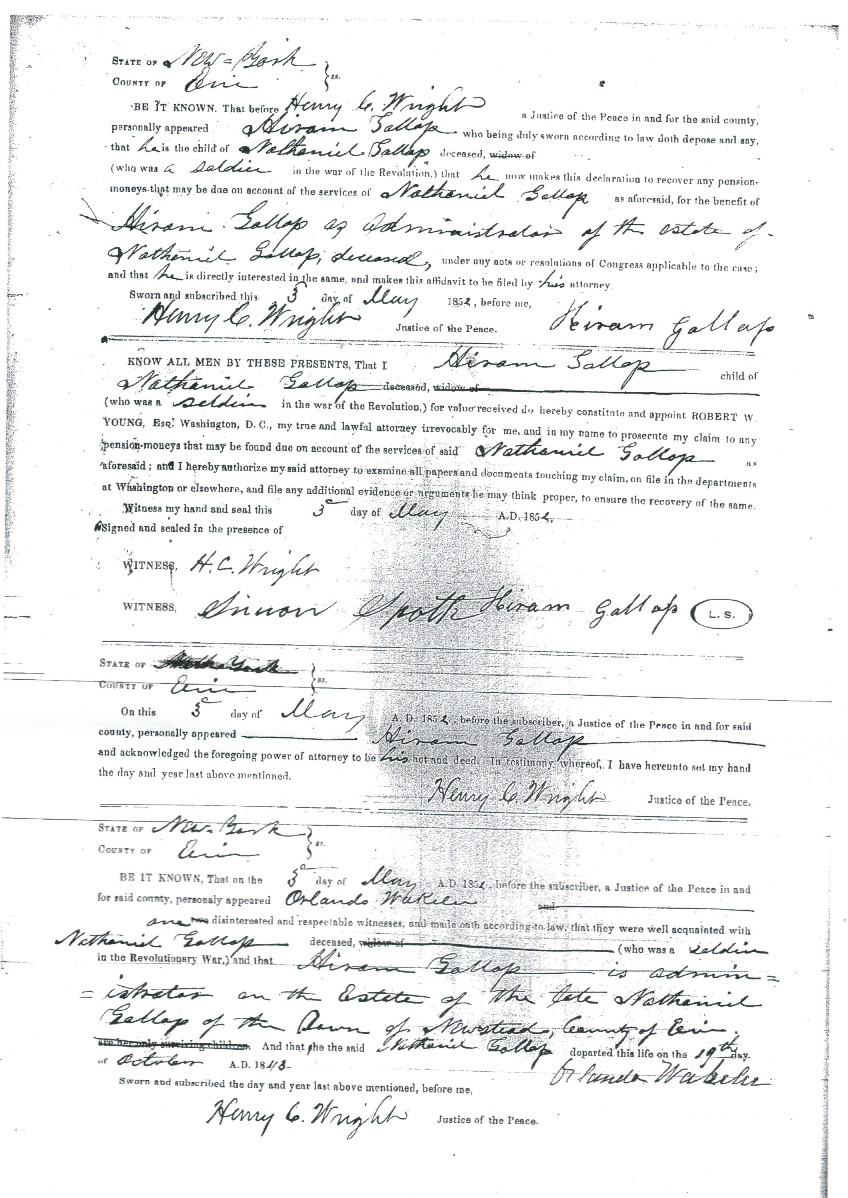 STATE OF New=York
COUNTY OF Erie } ss.
BE IT KNOWN. That before Henry C. Wright a Justice of the Peace in and for the said county,
personally appeared Hiram Gallop who being duly sworn according to law doth depose and say,
that he is the child of Nathaniel Gallop deceased, widow of
(who was a soldier in the war of the Revolution,) that he now makes this declaration to recover any pension-
moneys that may be due on account of the services of Nathaniel Gallop as aforesaid, for the benefit of
Hiram Gallop as Administrator of the estate of
Nathaniel Gallop, deceased, under any acts or resolutions of Congress applicable to the case;
and that he is directly interested in the same, and makes this affidavit to be filed by his attorney.
Sworn and subscribed this 3 day of May 1852, before me,
Henry C. Wright Justice of the Peace. Hiram Gallop
KNOW ALL MEN BY THESE PRESENTS, That I Hiram Gallop child of
Nathaniel Gallop deceased, widow of
(who was a soldier in the war of the Revolution,) for value received do hereby constitute and appoint ROBERT W.
YOUNG, Esq. Washington, D. C., my true and lawful attorney irrevocably for me, and in my name to prosecute my claim to any
pension-moneys that may be found due on account of the services of said Nathaniel Gallop as
aforesaid; and I hereby authorize my said attorney to examine all papers and documents touching my claim, on file in the departments
at Washington or elsewhere, and file any additional evidence or arguments he may think proper, to ensure the recovery of the same.
Witness my hand and seal this 3 day of May A.D. 1852.
Signed and sealed in the presence of
WITNESS, H. C. Wright
WITNESS, Simon Spoth Hiram Gallop L. S.
STATE OF York
COUNTY OF Erie } ss.
On this 3 day of May A. D. 1852, before the subscriber, a Justice of the Peace in and for said
county, personally appeared Hiram Gallop
and acknowledged the foregoing power of attorney to be his act and deed. In testimony whereof, I have hereunto set my hand
the day and year last above mentioned.
Henry C. Wright Justice of the Peace.
STATE OF New=York
COUNTY OF Erie } ss.
BE IT KNOWN, That on the 3 day of May A.D. 1852, before the subscriber, a Justice of the Peace in and
for said county, personaly appeared Orlando Wakelee and
one two disinterested and respectable witnesses, and made oath according to law, that they were well acquainted with
Nathaniel Gallop deceased, widow of (who was a soldier
in the Revolutionary War,) and that Hiram Gallop is admin=
=istrator on the Estate of the late Nathaniel
Gallop of the Town of Newstead, County of Erie.
are her only surviving children. And that he the said Nathaniel Gallop departed this life on the 19th day
of October A.D. 1843. Orlando Wakelee
Sworn and subscribed the day and year last above mentioned, before me,
Henry C. Wright Justice of the Peace.